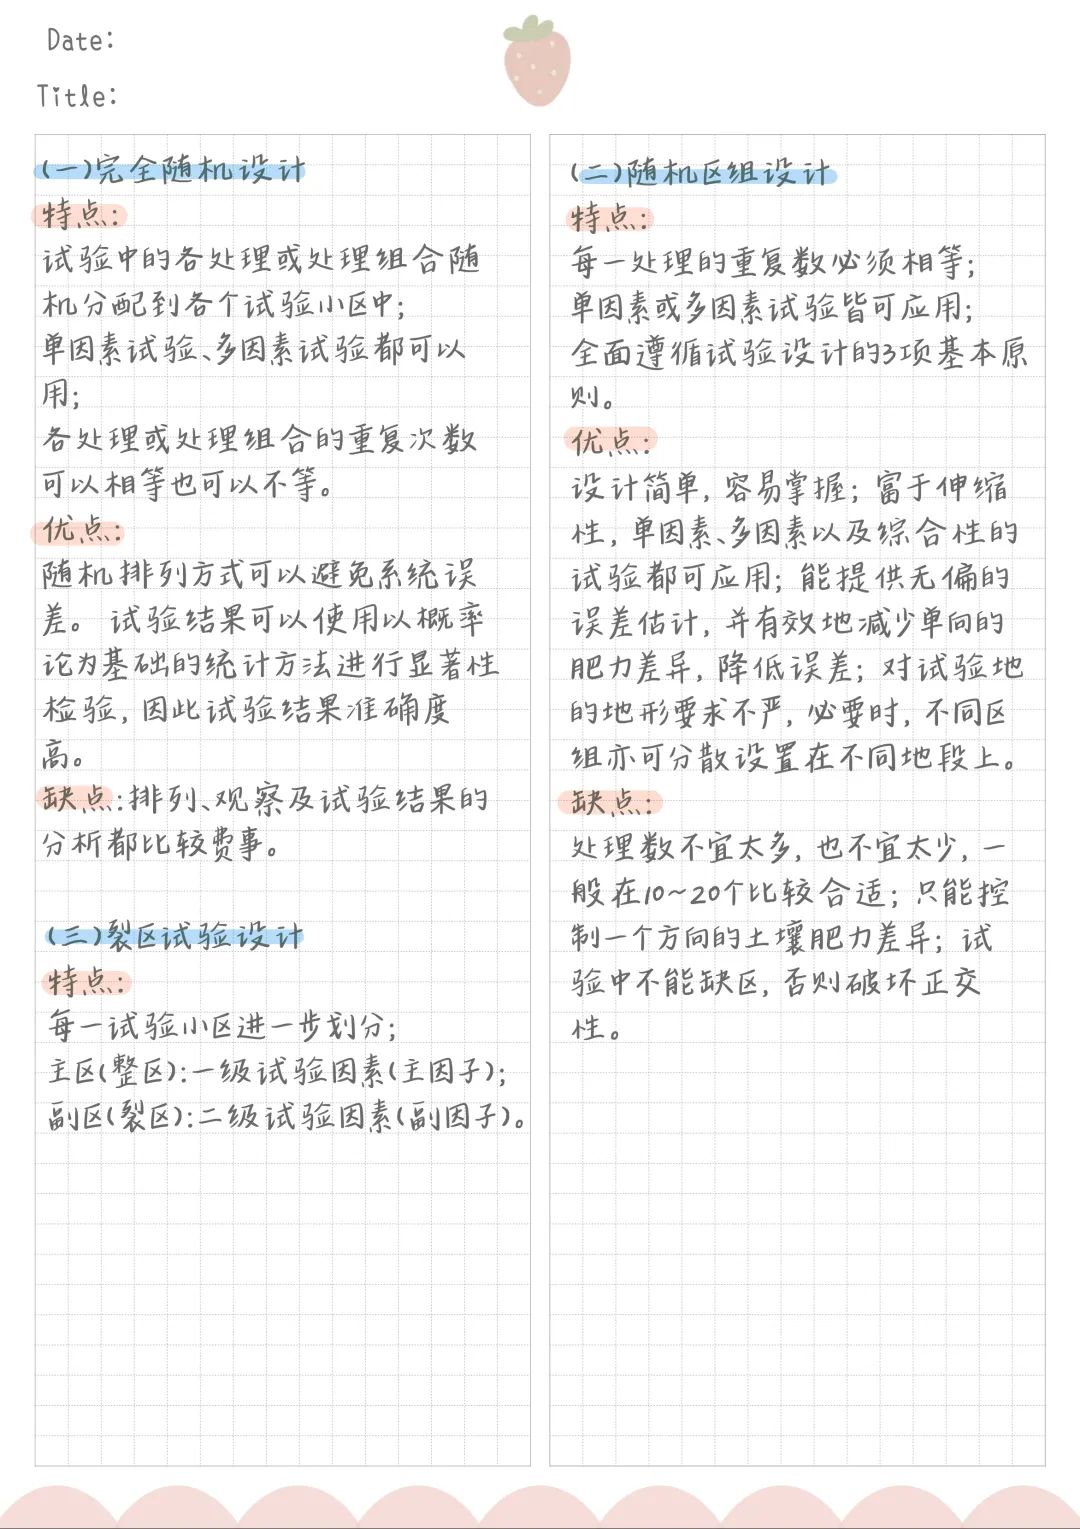 Date:
Title:
(一)完全随机设计
特点:
试验中的各处理或处理组合随
机分配到各个试验小区中;
单因素试验、多因素试验都可以
用;
各处理或处理组合的重复次数
可以相等也可以不等。
优点:
随机排列方式可以避免系统误
差。试验结果可以使用以概率
论为基础的统计方法进行显著性
检验,因此试验结果准确度
高。
缺点:排列、观察及试验结果的
分析都比较费事。
(三)裂区试验设计
特点:
每一试验小区进一步划分;
主区(整区):一级试验因素(主因子);
副区(裂区):二级试验因素(副因子)。
(二)随机区组设计
特点:
每一处理的重复数必须相等;
单因素或多因素试验皆可应用;
全面遵循试验设计的3项基本原
则。
优点:
设计简单,容易掌握;富于伸缩
性,单因素、多因素以及综合性的
试验都可应用;能提供无偏的
误差估计,并有效地减少单向的
肥力差异,降低误差;对试验地
的地形要求不严,必要时,不同区
组亦可分散设置在不同地段上。
缺点:
处理数不宜太多,也不宜太少,一
般在10~20个比较合适;只能控
制一个方向的土壤肥力差异;试
验中不能缺区,否则破坏正交
性。